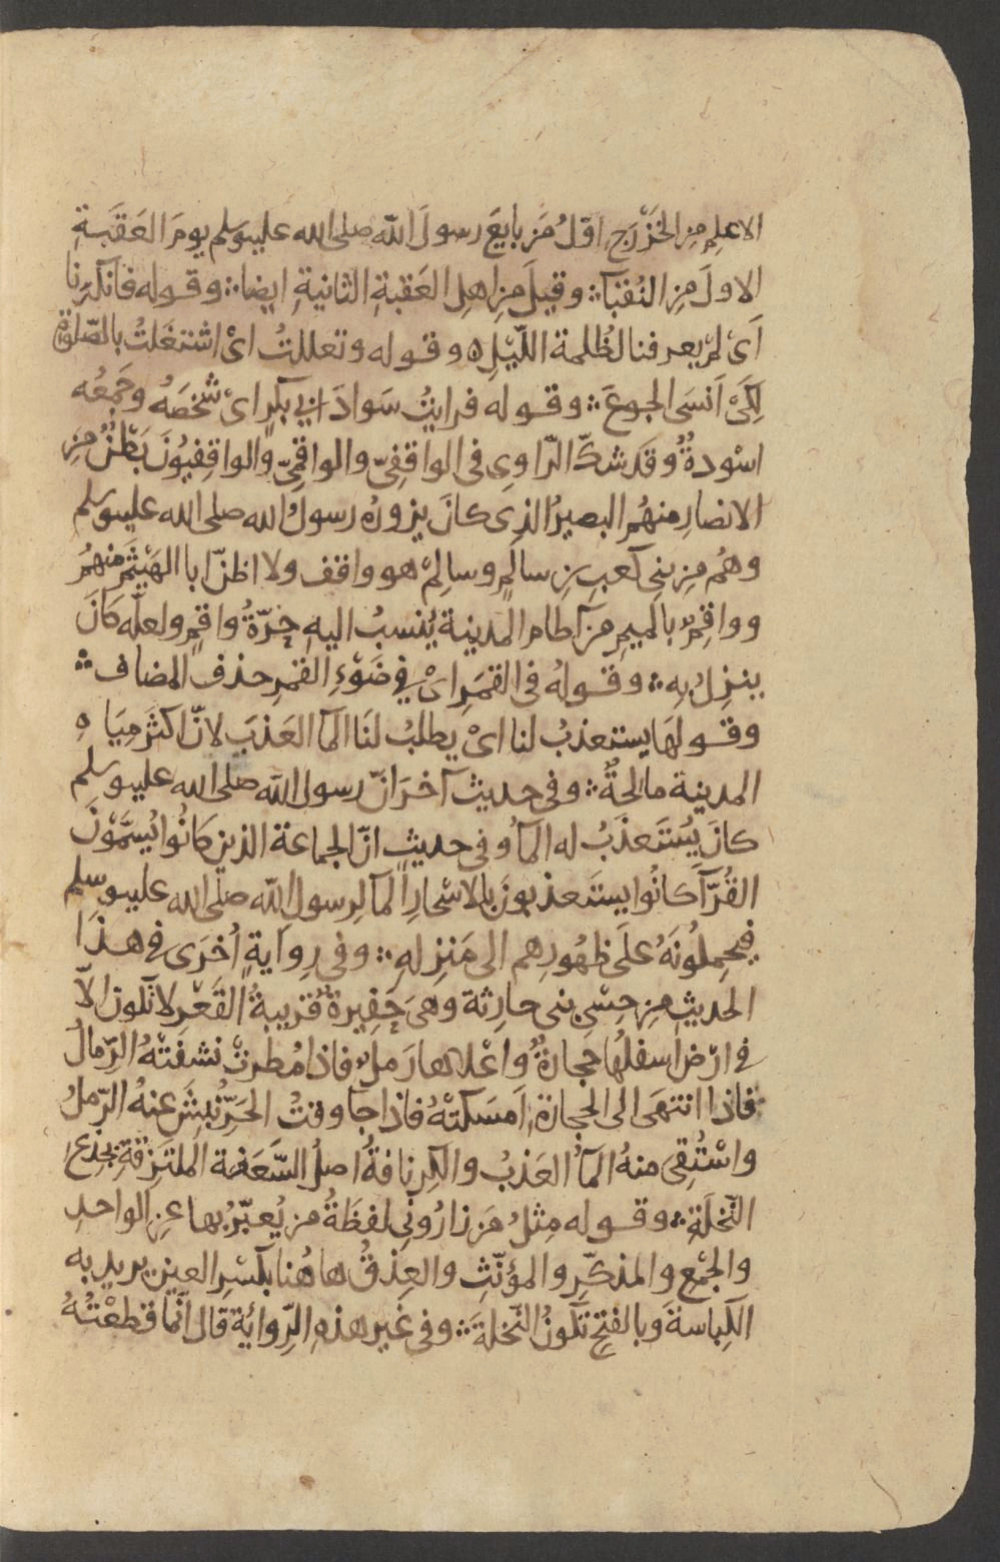 الاعلم من الخَزْرَج اوّلُ مَن بايعَ رسولَ الله صلى الله عليه وسلم يومَ العَقَبَةِ
الاولَى مِن النُقبَآ؞ وقيلَ مِن اهلِ العَقبةِ الثانيةِ ايضا؞ وقوله فانكرنا
اَىْ لم يعرفنا لظُلمة اللّيْلِ ه وقوله وتعللتُ اىْ اشتغَلتُ بالصّلوة
لِكَىْ اَنسَى الجوعَ؞ وقوله فرايتُ سَوادَ ابي بكرٍ اىْ شخصَهُ وجَمعُه
اسْودةٌ وقد شكّ الرّاوِى فى الواقِفِىّ والواقِمِىّ والواقِفيُونَ بَطْنٌ مِن
الانصارِ منهُم البصيرُ الذِى كانَ يزورُه رسولُ الله صلى الله عليه وسلم
وهُم مِن بنِى كعبِ بنِ سالمٍ وسالِمْ هو واقف ولا اظنّ ابا الهَيْثَم منهُم
وواقِمٌ بالميمِ مِن آطام المدينة يُنسبُ اليهِ حَرّةُ واقمٍ ولعلّه كانَ
ينزِلُ بِه؞ وقولهُ فى القمَرِ اىْ فى ضَوْءِ القمرِ حذف المضاف؞
وقولهَا يستعذبُ لنا اىْ يطلبُ لنَا المآ العَذبَ لانّ اكثرَ مِيَاهِ
المدينة مالحةٌ؞ وفى حديث آخرَ انّ رسول الله صلى الله عليه وسلم
كانَ يُسْتَعذَبُ له المآُ وفى حديثٍ انّ الجماعة الذين كانُوا يُسمَّوْنَ
القُرّآَ كانُوا يستَعذبونَ بالاسْحارِ المآ لرسولِ الله صلى الله عليه وسلم
فيحمِلُونَهُ علَى ظهُورِهم الى مَنزِلهِ؞ وفى رِوايةٍ اُخرَى فى هذَا
الحديثِ مِن حِسْىِ بنى حارِثة وهىَ حَفِيرةٌ قريبةُ القَعْرِ لا تكون الاّ
فى ارْضٍ اسفلُهَا حجارةٌ واعْلاها رَملٌ فاذا مُطرتْ نشفَتْهُ الرّمالُ
فاذا انتهَى الى الحجارةِ اَمسَكتْهُ فاذا جآ وقتُ الحَرّ نُبِشَ عنهُ الرّملُ
واسْتُقِىَ منهُ المآُ العَذبُ والكِرنافةُ اصلُ السّعَفة الملتَزِقةِ بجذعِ
النّخلَةِ؞ وقوله مِثلُ مَن زارُونِى لفظَةُ مَن يُعبّرُ بها عن الواحدِ
والجَمْعِ والمذكّرِ والمؤنّثِ والعِذقُ هاهُنا بكسْرِ العينِ يريد به
الكِباسةَ وبالفتحِ تكونُ النّخلةَ؞ وفى غَيرِ هذهِ الرّوايَة قال انّما قطعْتُهُ